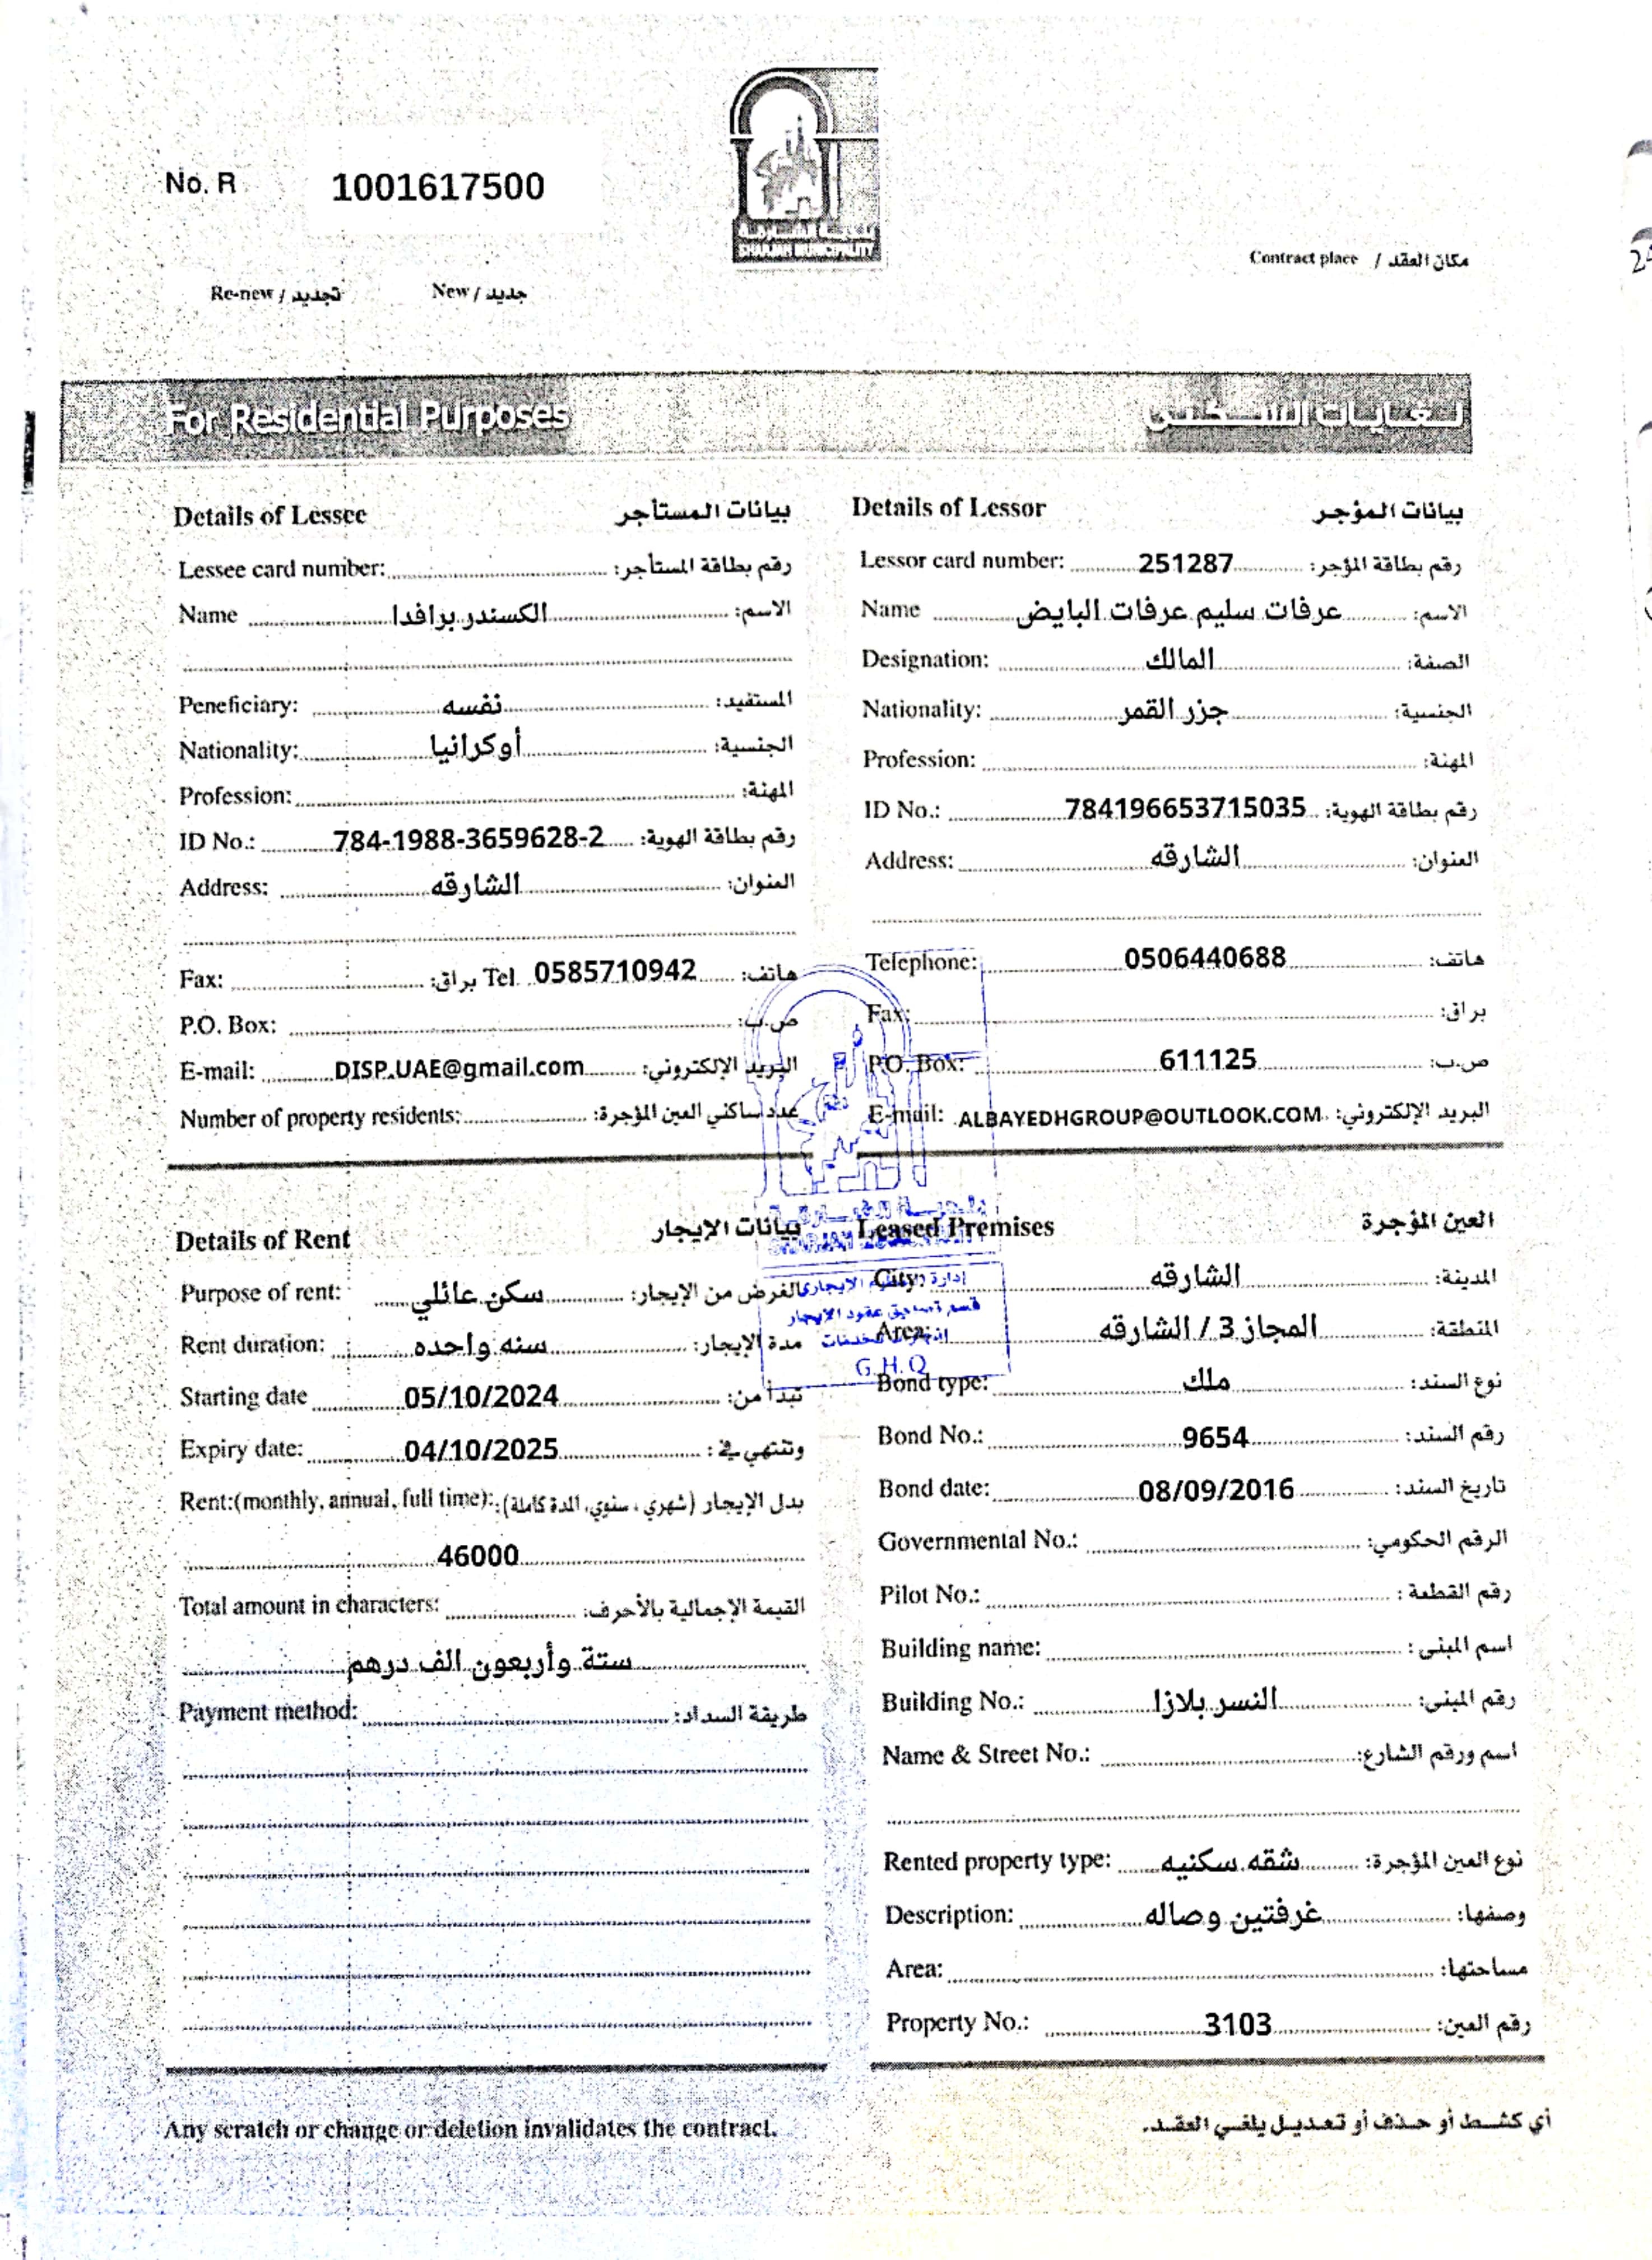 No. R 1001617500
بلدية الشارقة
SHARJAH MUNICIPALITY
Contract place / مكان العقد
Re-new / تجديد New / جديد
For Residential Purposes لغايات السكنى
Details of Lessee بيانات المستأجر
Lessee card number: رقم بطاقة المستأجر:
Name الكسندر برافدا الاسم:
Peneficiary: نفسه المستفيد:
Nationality: أوكرانيا الجنسية:
Profession: المهنة:
ID No.: 784-1988-3659628-2 رقم بطاقة الهوية:
Address: الشارقه العنوان:
Fax: براق: Tel. 0585710942 هاتف:
P.O. Box: ص.ب:
E-mail: DISP.UAE@gmail.com البريد الإلكتروني:
Number of property residents: عدد ساكني العين المؤجرة:
Details of Lessor بيانات المؤجر
Lessor card number: 251287 رقم بطاقة المؤجر:
Name عرفات سليم عرفات البايض الاسم:
Designation: المالك الصفة:
Nationality: جزر القمر الجنسية:
Profession: المهنة:
ID No.: 784196653715035 رقم بطاقة الهوية:
Address: الشارقه العنوان:
Telephone: 0506440688 هاتف:
Fax: براق:
P.O. Box: 611125 ص.ب:
E-mail: ALBAYEDHGROUP@OUTLOOK.COM البريد الإلكتروني:
Details of Rent بيانات الإيجار
Purpose of rent: سكن عائلي الغرض من الإيجار:
Rent duration: سنه واحده مدة الإيجار:
Starting date 05/10/2024 تبدأ من:
Expiry date: 04/10/2025 وتنتهي في:
Rent:(monthly, annual, full time): بدل الإيجار (شهري، سنوي، المدة كاملة):
46000
Total amount in characters: القيمة الإجمالية بالأحرف:
ستة وأربعون الف درهم
Payment method: طريقة السداد:
Leased Premises العين المؤجرة
City: الشارقه المدينة:
Area: المجاز 3 / الشارقه المنطقة:
Bond type: ملك نوع السند:
Bond No.: 9654 رقم السند:
Bond date: 08/09/2016 تاريخ السند:
Governmental No.: الرقم الحكومي:
Pilot No.: رقم القطعة:
Building name: اسم المبنى:
Building No.: النسر بلازا رقم المبنى:
Name & Street No.: اسم ورقم الشارع:
Rented property type: شقه سكنيه نوع العين المؤجرة:
Description: غرفتين وصاله وصفها:
Area: مساحتها:
Property No.: 3103 رقم العين:
قسم تصديق عقود الايجار
G.H.Q
Any scratch or change or deletion invalidates the contract. أي كشط أو حذف أو تعديل يلغي العقد.